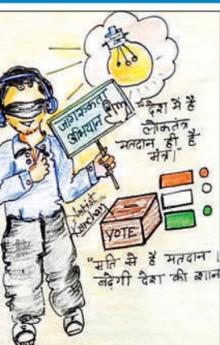 जागरूकता
अभियान
"देश में है
लोकतंत्र
मतदान ही है
मंत्र।"
Artist
VOTE
"मति से दें मतदान।
बढ़ेगी देश की शान